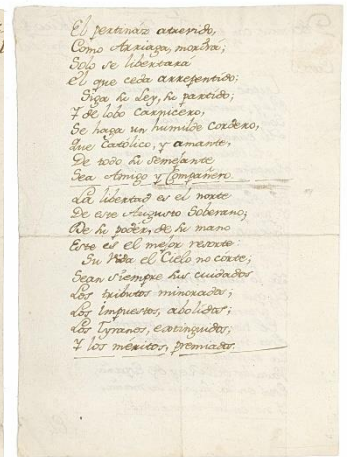 El pertináz atrevido,
Como Arriaga, morirá;
Solo se libertará
el que ceda arrepentido:
Siga su Ley, su partido;
Y de lobo carnicero,
Se haga un humilde Cordero,
Que Católico, y amante,
De todo su semejante
Sea Amigo y Compañero.
La libertad es el norte
De este Augusto Soberano;
De su poder, de su mano
Este es el mejor resorte:
Su Vida el Cielo no corte;
Sean siempre sus cuidados
Los tributos minorados;
Los Impuestos, abolidos;
Los Tyranos, extinguidos,
Y los méritos, premiados.